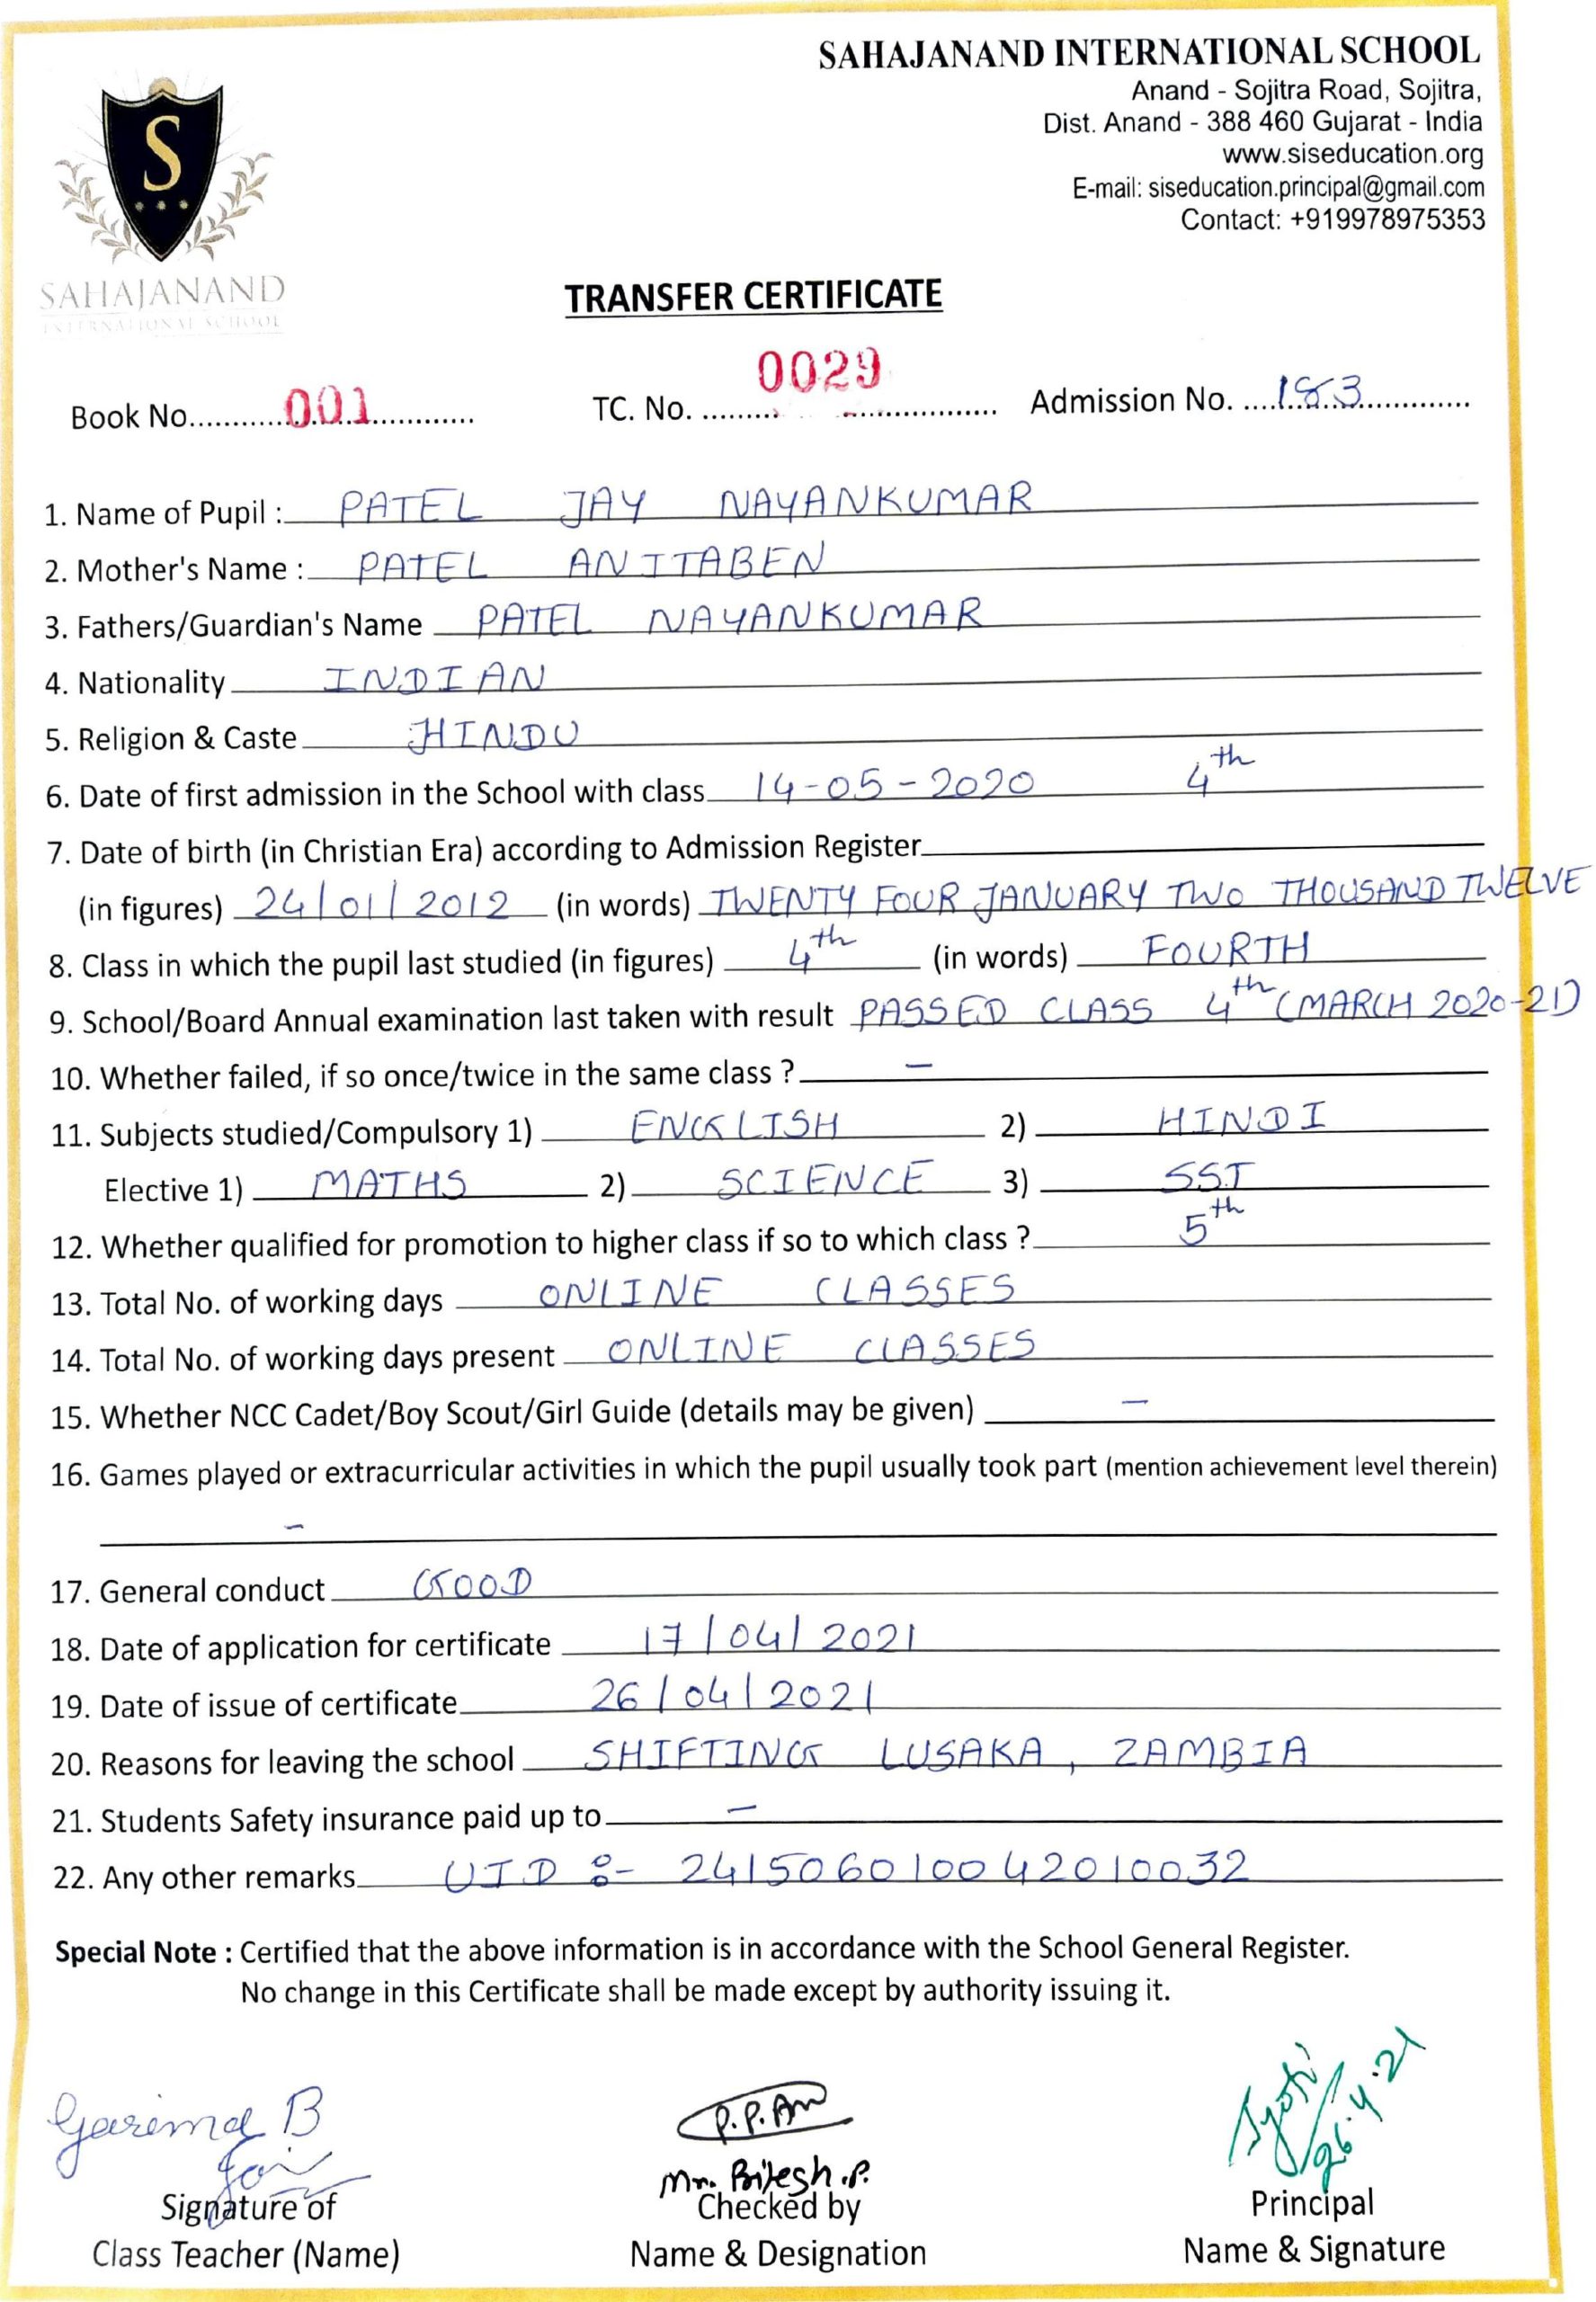 SAHAJANAND INTERNATIONAL SCHOOL
Anand - Sojitra Road, Sojitra,
Dist. Anand - 388 460 Gujarat - India
www.siseducation.org
E-mail: siseducation.principal@gmail.com
Contact: +919978975353
S
SAHAJANAND
INTERNATIONAL SCHOOL
TRANSFER CERTIFICATE
Book No. 001 TC. No. 0029 Admission No. 183
1. Name of Pupil : PATEL JAY NAYANKUMAR
2. Mother's Name : PATEL ANITABEN
3. Fathers/Guardian's Name PATEL NAYANKUMAR
4. Nationality INDIAN
5. Religion & Caste HINDU
6. Date of first admission in the School with class 14-05-2020 4th
7. Date of birth (in Christian Era) according to Admission Register
(in figures) 24/01/2012 (in words) TWENTY FOUR JANUARY TWO THOUSAND TWELVE
8. Class in which the pupil last studied (in figures) 4th (in words) FOURTH
9. School/Board Annual examination last taken with result PASSED CLASS 4th (MARCH 2020-21)
10. Whether failed, if so once/twice in the same class ? –
11. Subjects studied/Compulsory 1) ENGLISH 2) HINDI
Elective 1) MATHS 2) SCIENCE 3) SST
12. Whether qualified for promotion to higher class if so to which class ? 5th
13. Total No. of working days ONLINE CLASSES
14. Total No. of working days present ONLINE CLASSES
15. Whether NCC Cadet/Boy Scout/Girl Guide (details may be given) –
16. Games played or extracurricular activities in which the pupil usually took part (mention achievement level therein)
–
17. General conduct GOOD
18. Date of application for certificate 17/04/2021
19. Date of issue of certificate 26/04/2021
20. Reasons for leaving the school SHIFTING LUSAKA, ZAMBIA
21. Students Safety insurance paid up to –
22. Any other remarks UID :- 241506010042010032
Special Note : Certified that the above information is in accordance with the School General Register.
No change in this Certificate shall be made except by authority issuing it.
Garima B
Jyoti 26.4.21
Signature of
Class Teacher (Name)
Checked by
Name & Designation
Principal
Name & Signature